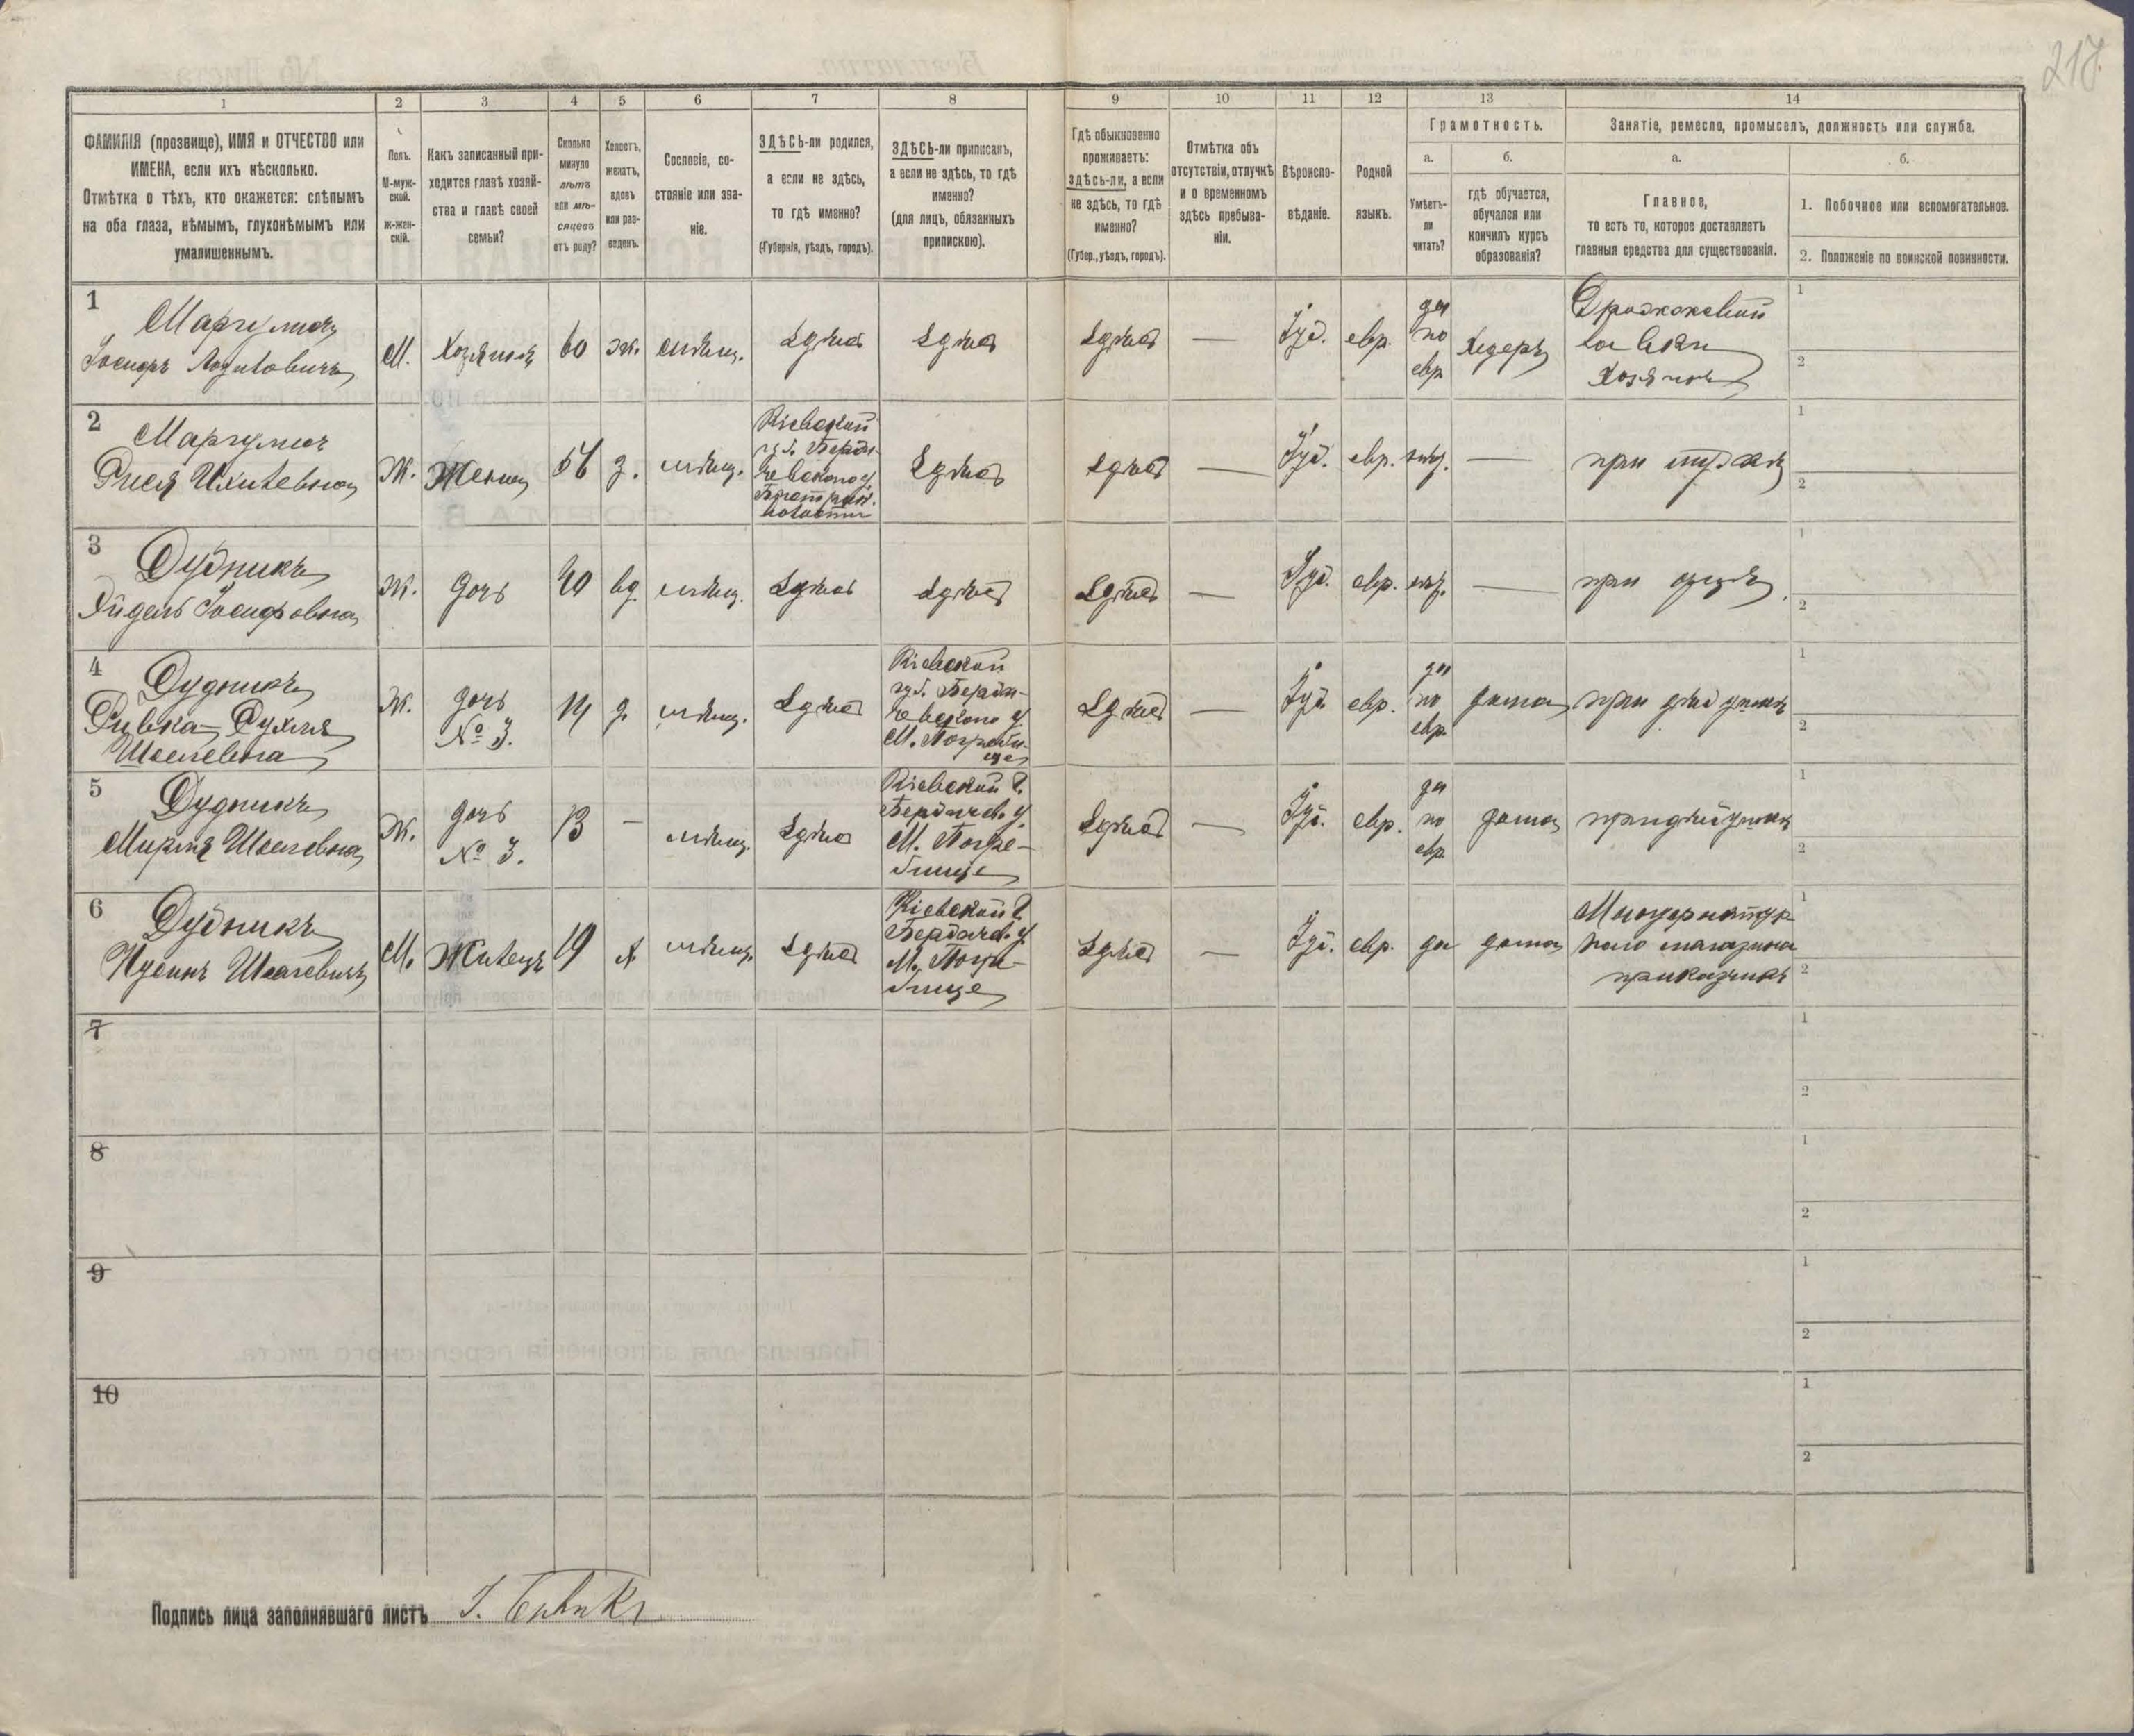 217.
1 2 3 4 5 6 7 8 9 10 11 12 13 14
ФАМИЛІЯ (прозвище), ИМЯ и ОТЧЕСТВО или
ИМЕНА, если ихъ нѣсколько.
Отмѣтка о тѣхъ, кто окажется: слѣпымъ
на оба глаза, нѣмымъ, глухонѣмымъ или
умалишеннымъ.
Полъ.
М-муж-
ской.
ж-жен-
скій.
Какъ записанный при-
ходится главѣ хозяй-
ства и главѣ своей
семьи?
Сколько
минуло
лѣтъ
или мѣ-
сяцевъ
отъ роду?
Холостъ,
женатъ,
вдовъ
или раз-
веденъ.
Сословіе, со-
стояніе или зва-
ніе.
ЗДѢСЬ-ли родился,
а если не здѣсь,
то гдѣ именно?
(Губернія, уѣздъ, городъ).
ЗДѢСЬ-ли приписанъ,
а если не здѣсь, то гдѣ
именно?
(для лицъ, обязанныхъ
припискою).
Гдѣ обыкновенно
проживаетъ:
здѣсь-ли, а если
не здѣсь, то гдѣ
именно?
(Губер., уѣздъ, городъ).
Отмѣтка объ
отсутствіи, отлучкѣ
и о временномъ
здѣсь пребыва-
ніи.
Вѣроиспо-
вѣданіе.
Родной
языкъ.
Грамотность.
а.
Умѣетъ-
ли
читать?
б.
гдѣ обучается,
обучался или
кончилъ курсъ
образованія?
Занятіе, ремесло, промыселъ, должность или служба.
а.
Главное,
то есть то, которое доставляетъ
главныя средства для существованія.
б.
1. Побочное или вспомогательное.
2. Положеніе по воинской повинности.
1
Маргулисъ
Іосифъ
М.
Хозяинъ
60
ж.
мѣщ.
Здѣсь
Здѣсь
Здѣсь
—
Іуд.
евр.
да
по
евр.
Хедеръ
Дрожжевой
лавки
Хозяинъ
1
2
2
Маргулисъ
Ж.
Жена
з.
мѣщ.
Кіевской
губ. Берди-
чевского у.
волости
Здѣсь
Здѣсь
—
Іуд.
евр.
—
при мужѣ
1
2
3
Дудникъ
Іосифовна
Ж.
дочь
40
вд.
мѣщ.
Здѣсь
Здѣсь
Здѣсь
—
Іуд.
евр.
—
при отцѣ
1
2
4
Дудникъ
Ривка-Рухля
Ж.
дочь
№ 3.
14
д.
мѣщ.
Здѣсь
Кіевской
губ. Берди-
чевского у.
М. Погреби-
ще
Здѣсь
—
Іуд.
евр.
да
по
евр.
дома
при дѣдушкѣ
1
2
5
Дудникъ
Ж.
дочь
№ 3.
13
—
мѣщ.
Здѣсь
Кіевской г.
Бердичев. у.
М. Погре-
бище
Здѣсь
—
Іуд.
евр.
да
по
евр.
дома
при дѣдушкѣ
1
2
6
Дудникъ
М.
Жилецъ
19
х
мѣщ.
Здѣсь
Кіевской г.
Бердичев. у.
М. Погре-
бище
Здѣсь
—
Іуд.
евр.
да
дома
Мануфактур-
наго магазина
приказчикъ
1
2
7
1
2
8
1
2
9
1
2
10
1
2
Подпись лица заполнявшаго листъ